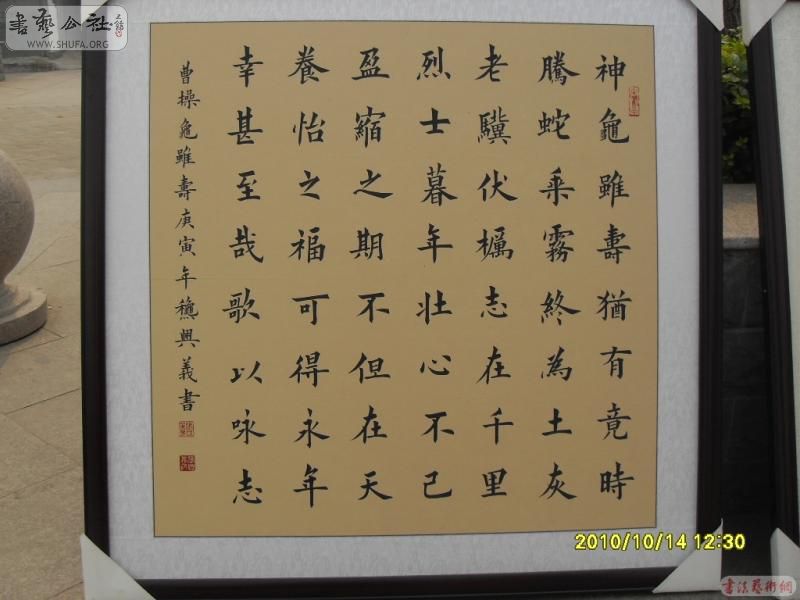 神龜雖壽猶有竟時
騰蛇乘霧終為土灰
老驥伏櫪志在千里
烈士暮年壯心不已
盈縮之期不但在天
養怡之福可得永年
幸甚至哉歌以咏志
曹操龜雖壽庚寅年穐興義書
書藝公社
WWW.SHUFA.ORG
2010/10/14 12:30
書法藝術網